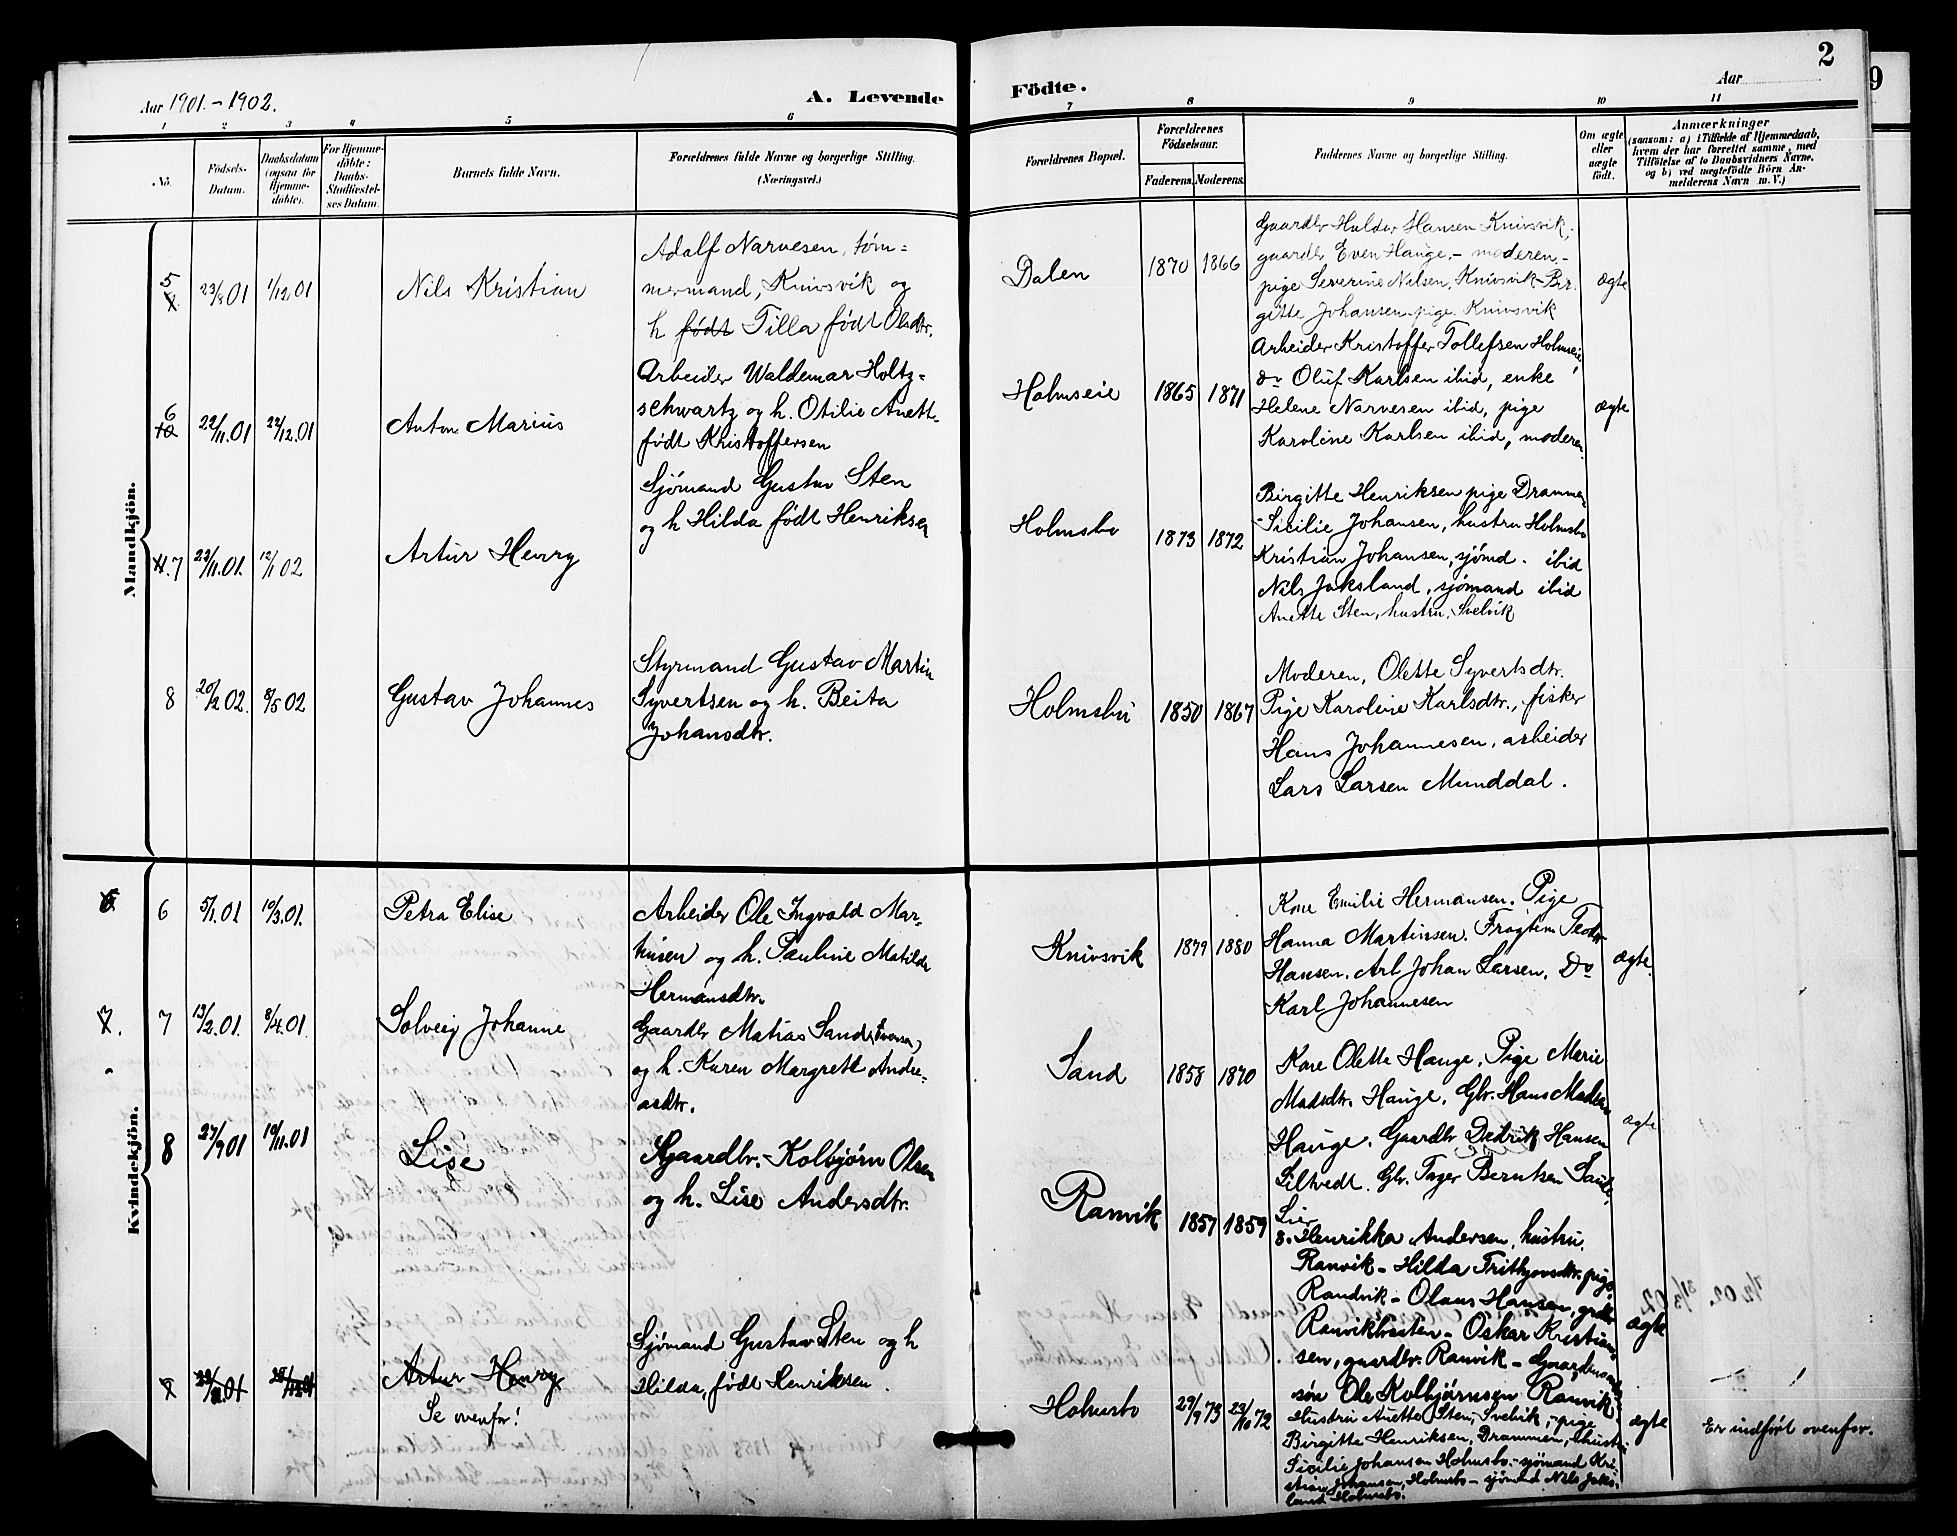 Aar 1901.-1902.
A. Levende
Födte.
Aar
2
9
1
2
3
4
5
6
7
8
9
10
11
No.
Födsels-
Datum.
Daabsdatum
(ogsaa for
Hjemme-
döbte).
For Hjemme-
döbte:
Daabs-
Stadfæstel-
ses Datum.
Barnets fulde Navn.
Forældrenes fulde Navne og borgerlige Stilling.
(Næringsvei.)
Forældrenes Bopæl.
Forældrenes
Födselsaar.
Faderens.
Moderens.
Faddernes Navne og borgerlige Stilling.
Om ægte
eller
uægte
födt.
Anmærkninger
(saasom: a) i Tilfælde af Hjemmedaab,
hvem der har forrettet samme, med
Tilföielse af to Daabsvidners Navne,
og b) ved uægtefödte Börn An-
melderens Navn m. V.)
Mandkjön.
5
23/8 01
1/12 01
Nils Kristian
Adolf Narvesen, tøm=
mermand, Knivsvik og
h født Tilla født Olsdtr.
Dalen
1870
1866
Gaardbr Halder Hansen Knivsvik,
gaardbr Even Hauge, - moderen, -
pige Severine Nilsen, Knivsvik - Bir-
gitte Johansen pige. Knivsvik
ægte
6
10
22/11.01
22/12.01
Anton Marius
Arbeider Waldemar Holtz=
schwartz og h. Otilie Anett-
født Kristoffersen
Holmseie
1865
1871
Arbeider Kristoffer Tollefsen Holmseie,
do Oluf Karlsen ibid, enke
Helene Narvesen ibid, pige
Karoline Karlsen ibid, moderen
ægte
11.7
23/11.01.
12/1 02
Artur Henry
Sjømand Gustav Sten
og h Hilda født Henriksen
Holmsbo
1873
1872
Birgitte Henriksen pige Drammen
- Sicilie Johansen, hustru Holmsbo
Kristian Johansen, sjømd. ibid
Nils Jaksland, sjømand ibid
Anette Sten, hustru, Svelvik
8
20/2 02.
8/5 02
Gustav Johannes
Styrmand Gustav Martin
Syvertsen og h. Beita
Johansdtr.
Holmsbu
1850
1867
Moderen, Olette Syvertsdtr.
Pige Karoline Karlsdtr., fisker
Hans Johannesen, arbeider
Lars Larsen Munddal.
Kvindekjön.
6
5/1.01
10/3.01.
Petra Elise
Arbeider Ole Ingvald Mar-
tinsen og h. Pauline Matilde
Hermansdtr.
Knivsvik
1879
1880
Kone Emilie Hermansen. Pige
Hanna Martinsen.
Hansen. Arb Johan Larsen. Do
Karl Johannesen
ægte.
7.
7
13/2.01.
8/4.01
Solveig Johanne
Gaardbr Matias Sand
og h. Karen Margrette Andre=
asdtr.
Sand
1858
1870
Kone Olette Hauge, Pige Marie
Madsdtr. Hauge, Gbr. Hans Madsen
Hauge. Gaardbr Dedrik Hansen
Siltvedt. Gbr. Berntsen
Lier
ægte
8
27/9 01
10/11.01
Lise
Gaardbr. Kolbjørn Olsen
og h. Lise Andersdtr.
Ranvik
1857
1859
8. Henrikka Andersen, hustru,
Ranvik - Hilda Fritjovsdtr. pige,
Randvik - Olaus Hansen, grdbr
- Oskar Kristian-
sen, gaardbr. Ranvik -
søn Ole Kolbjørnsen Ranvik
ægte
9
Artur Henry
Se ovenfor!
Sjømand Gustav Sten og h
Hilda, født Henriksen.
Holmsbo
27/9 73
23/10 72
Hustru Anette Sten, Svelvik, - pige
Birgitte Henriksen, Drammen, - hustru
Sicilie Johansen Holmsbo - sjømand Kri-
stian Johansen, Holmsbo - sjømand Nils Jaks-
land Holmsbo.
ægte
Er indført ovenfor.